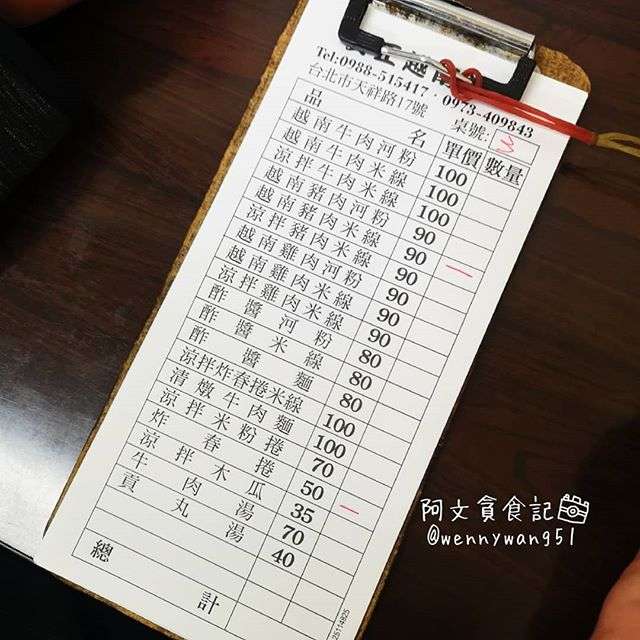 越南
Tel:0988-515417・0973-409843
台北市天祥路17號 桌號: 3
品名 單價 數量
越南牛肉河粉 100
越南牛肉米線 100
涼拌牛肉米線 100
越南豬肉河粉 90
越南豬肉米線 90 一
涼拌豬肉米線 90
越南雞肉河粉 90
越南雞肉米線 90
涼拌雞肉米線 90
酢醬河粉 80
酢醬米線 80
酢醬麵 80
涼拌炸春捲米線 100
清燉牛肉麵 100
涼拌米粉捲 70
炸春捲 50 一
涼拌木瓜 35
牛肉湯 70
貢丸湯 40
總計
阿文貪食記
@wennywang51